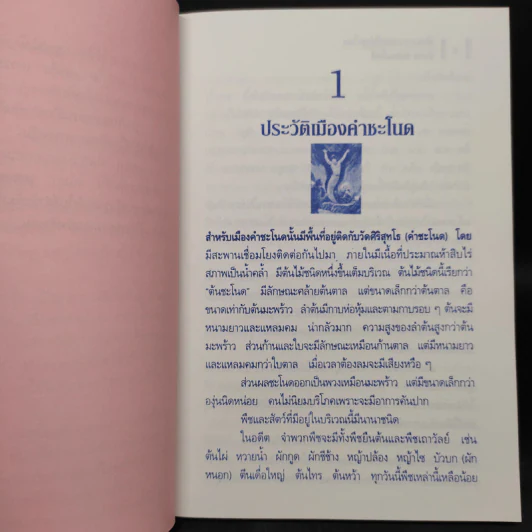 1
ประวัติเมืองคำชะโนด
สำหรับเมืองคำชะโนดนั้นมีพื้นที่อยู่ติดกับวัดศิริสุทโธ (คำชะโนด) โดย
มีสะพานเชื่อมโยงติดต่อกันไปมา ภายในมีเนื้อที่ประมาณห้าสิบไร่
สภาพเป็นน้ำคล้ำ มีต้นไม้ชนิดหนึ่งขึ้นเต็มบริเวณ ต้นไม้ชนิดนี้เรียกว่า
"ต้นชะโนด" มีลักษณะคล้ายต้นตาล แต่ขนาดเล็กกว่าต้นตาล คือ
ขนาดเท่ากับต้นมะพร้าว ลำต้นมีกาบห่อหุ้มและตามกาบรอบ ๆ ต้นจะมี
หนามยาวและแหลมคม น่ากลัวมาก ความสูงของลำต้นสูงกว่าต้น
มะพร้าว ส่วนก้านและใบจะมีลักษณะเหมือนก้านตาล แต่มีหนามยาว
และแหลมคมกว่าใบตาล เมื่อเวลาต้องลมจะมีเสียงหวือ ๆ
ส่วนผลชะโนดออกเป็นพวงเหมือนมะพร้าว แต่มีขนาดเล็กกว่า
องุ่นนิดหน่อย คนไม่นิยมบริโภคเพราะจะมีอาการคันปาก
พืชและสัตว์ที่มีอยู่ในบริเวณนี้มีนานาชนิด
ในอดีต จำพวกพืชจะมีทั้งพืชยืนต้นและพืชเถาวัลย์ เช่น
ต้นไผ่ หวายน้ำ ผักกูด ผักชีช้าง หญ้าปล้อง หญ้าไซ บัวบก (ผัก
หนอก) ตีนเต่าใหญ่ ต้นไทร ต้นหว้า ทุกวันนี้พืชเหล่านี้เหลือน้อย